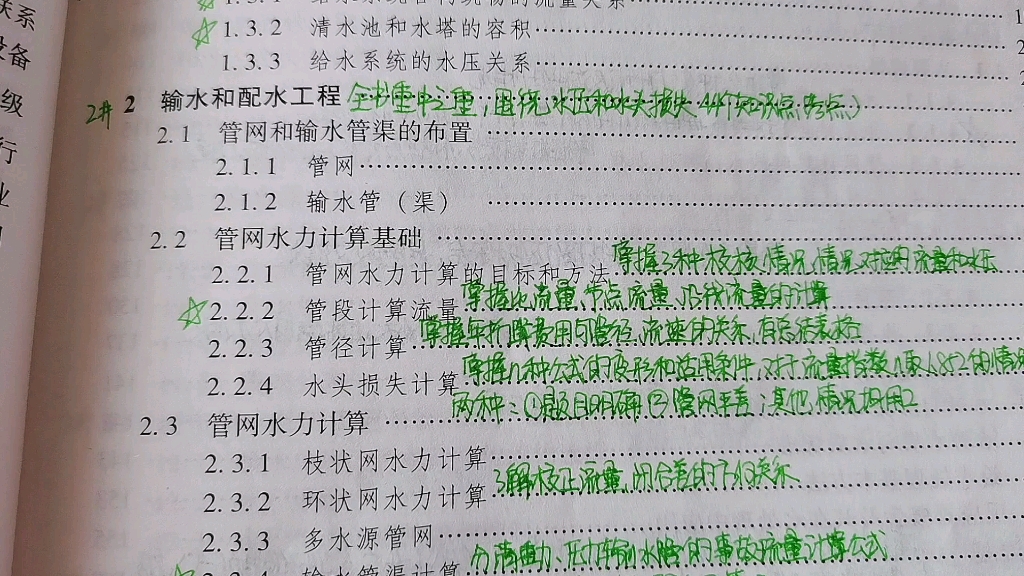 联系
设备
级
行
业
1.3.1 给水系统各构筑物的流量关系
☆ 1.3.2 清水池和水塔的容积
1.3.3 给水系统的水压关系
2 输水和配水工程 全书重中之重,围绕水压和水头损失 44个知识点(考点)
2.1 管网和输水管渠的布置
2.1.1 管网
2.1.2 输水管(渠)
2.2 管网水力计算基础
2.2.1 管网水力计算的目标和方法 掌握3种校核情况,情况对应的流量和水压
☆ 2.2.2 管段计算流量 掌握比流量,节点流量,沿线流量的计算
2.2.3 管径计算 掌握年折算费用与管径,流速的关系,有总结表格
2.2.4 水头损失计算 掌握几种公式的变形和适用条件,对于流量指数n取1.852的情况
两种:①题目明确②管网平差;其他情况均用2
2.3 管网水力计算
2.3.1 枝状网水力计算
2.3.2 环状网水力计算 了解校正流量,闭合差的 关系
2.3.3 多水源管网
2.3.4 输水管渠计算 分清重力、压力输水管的事故流量计算公式